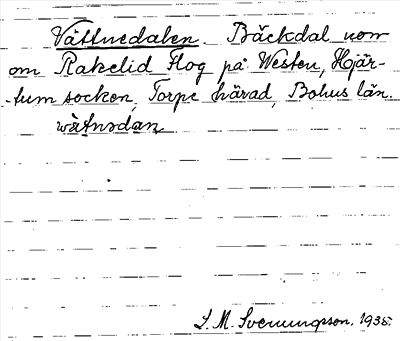 Vättnedalen. Bäckdal norr
om Rakelid Flog på Westen, Hjär-
-tum socken, Torpe härad, Bohus län.
wätnsdan
S. M. Svenungsson. 1935.